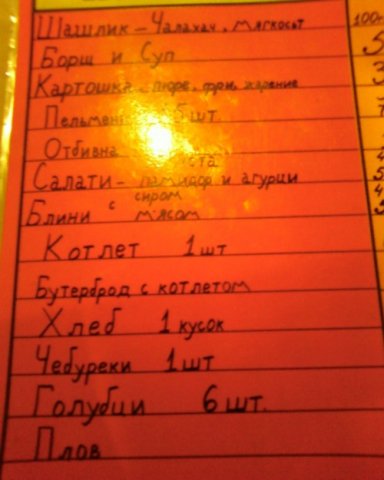 Шашлик - Чалахач, мягкосьт 100
Борщ и Суп
Картошка - пюре, фри, жарение
Пельмени 5 шт
Отбивна
Салати - памидор и агурци
Блини с сиром мясом
Котлет 1 шт
Бутерброд с котлетом
Хлеб 1 кусок
Чебуреки 1 шт
Голубци 6 шт.
Плов